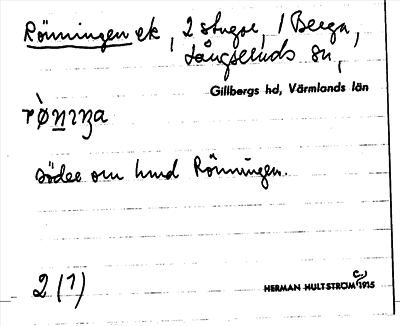 Rönningen ek, 2 stugor, 1 Berga,
Långseruds sn,
Gillbergs hd, Värmlands län
söder om hmd Rönningen.
2 (1)
HERMAN HULTSTRÖM 1915